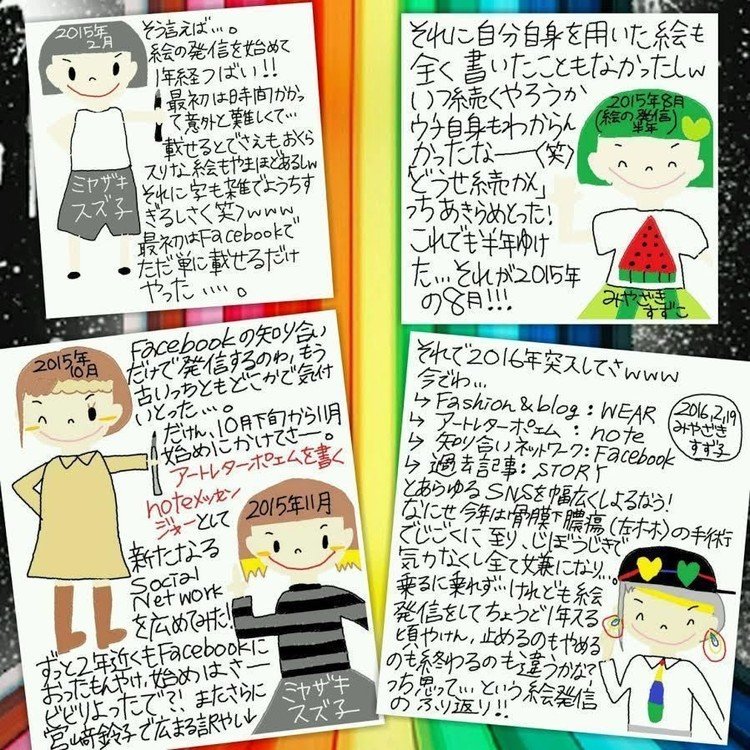 2015年
2月
そう言えば…。
絵の発信を始めて
1年経つばい!!
最初は8時間かかっ
て意外と難しくて…
載せるとでさえもおくら
スリな絵も山ほどあるしw
それに字も雑でよっちす
ぎるしさく笑>www
最初はFacebookで
ただ単に載せるだけ
やった‥‥。
ミヤザキ
スズ子
それに自分自身を用いた絵も
全く書いたこともなかったしw
いつ続くやろうか
ウチ自身もわからん
かったなーー<笑>
「どうせ続かん」
っちあきらめとった!
これでも半年ゆけ
た…それが2015年
の8月!!!
2015年8月
(絵の発信)
半年
みやざき
すずこ
2015年
10月
Facebookの知り合い
だけで発信するのわ,もう
古いっちともどこかで気付
いとった…。
だけん,10月下旬から11月
始めにかけてさー。
アートレターポエムを書く
noteメッセン
ジャーとして
新たなる
Social
Network
を広めてみた!
ずっと2年近くもFacebookに
おったもんやけ,始めはさー
ビビりよったで?!またさらに
宮崎鈴子で広まる訳やし↓
2015年11月
ミヤザキ
スズ子
それで2016年突入してさwww
今でわ…
↳Fashion&blog:WEAR
↳アートレターポエム:note
↳知り合いネットワーク:Facebook
↳過去記事:STORY
とあらゆるSNSを幅広くしよるなう!
なにせ今年は骨膜下膿瘍(左ホホ)の手術
でじごくに至り,じぼうじきで
気力なくし全て嫌になり…。
乗るに乗れず…けれども絵
発信をしてちょうど1年迎える
頃やけん,止めるのもやめる
のも終わるのも違うかな?
っち思って…という絵発信
のふり返り!!
2016,2,19
みやざき
すず子